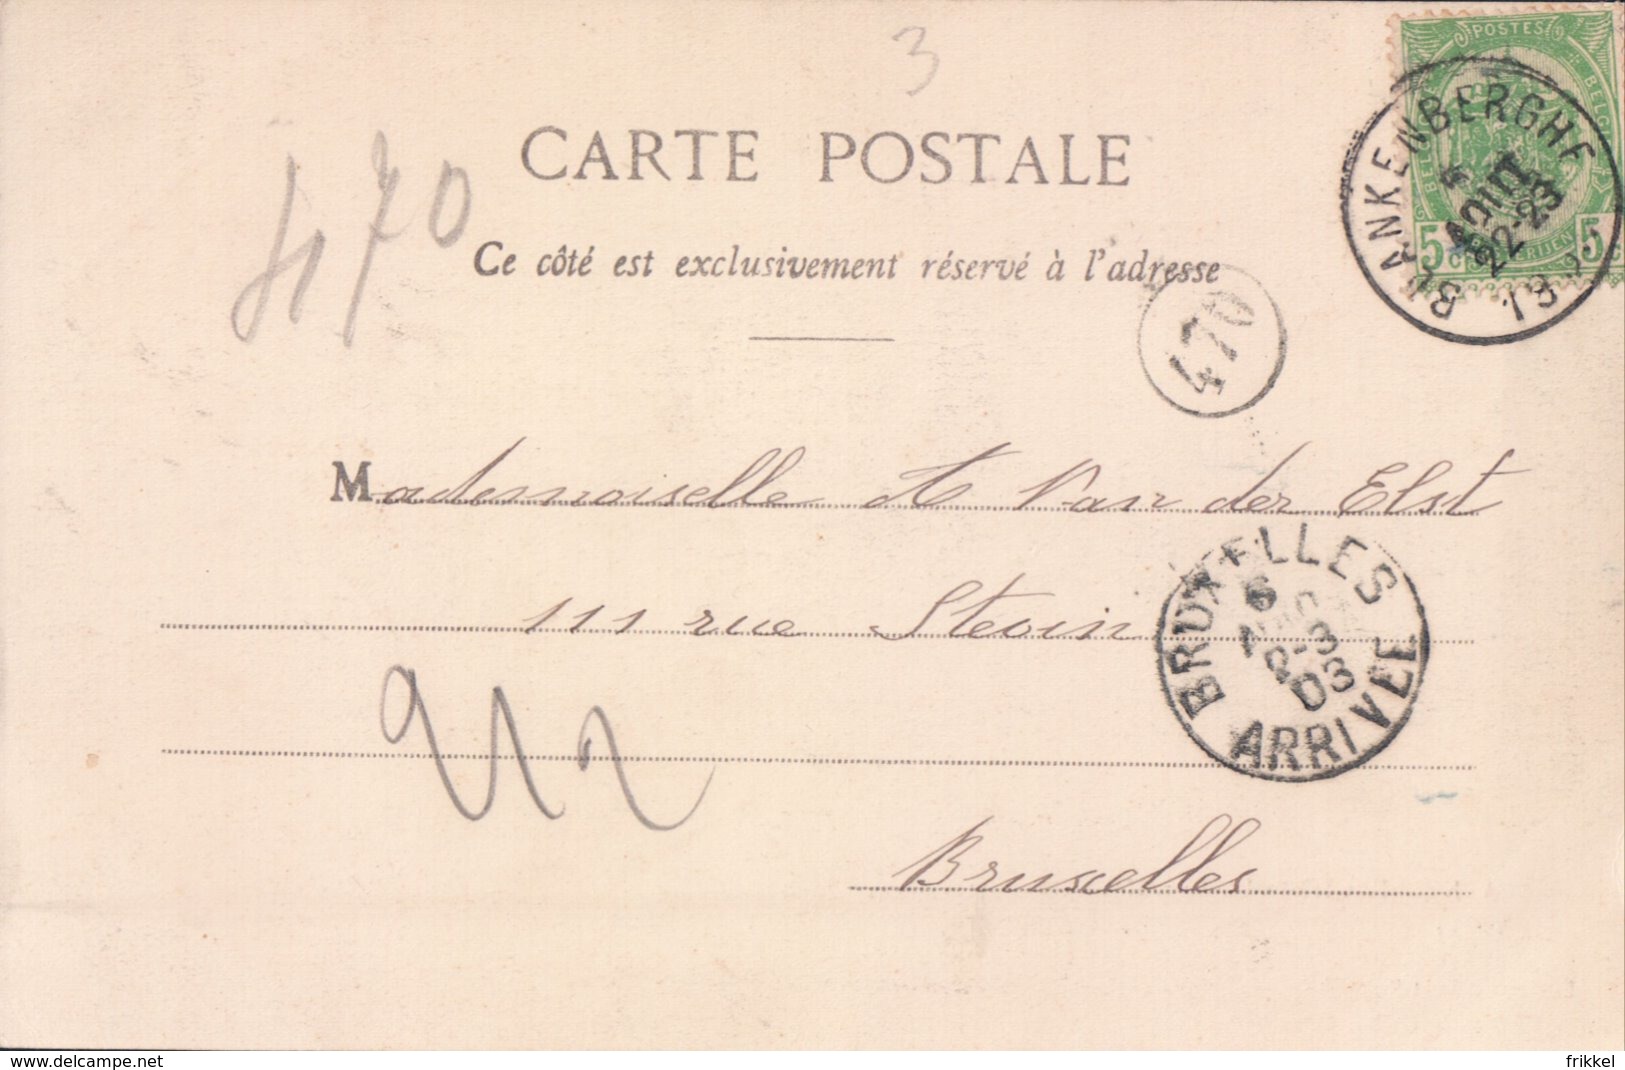 3
POSTES
BELGIQUE
5
5
BLANKENBERGHE
5
AOUT
22-23
1903
CARTE POSTALE
470
Ce côté est exclusivement réservé à l'adresse
470
Mademoiselle A Van der Elst
111 rue Stevin
BRUXELLES
6
2-3
03
ARRIVEE
Bruxelles
www.delcampe.net
frikkel